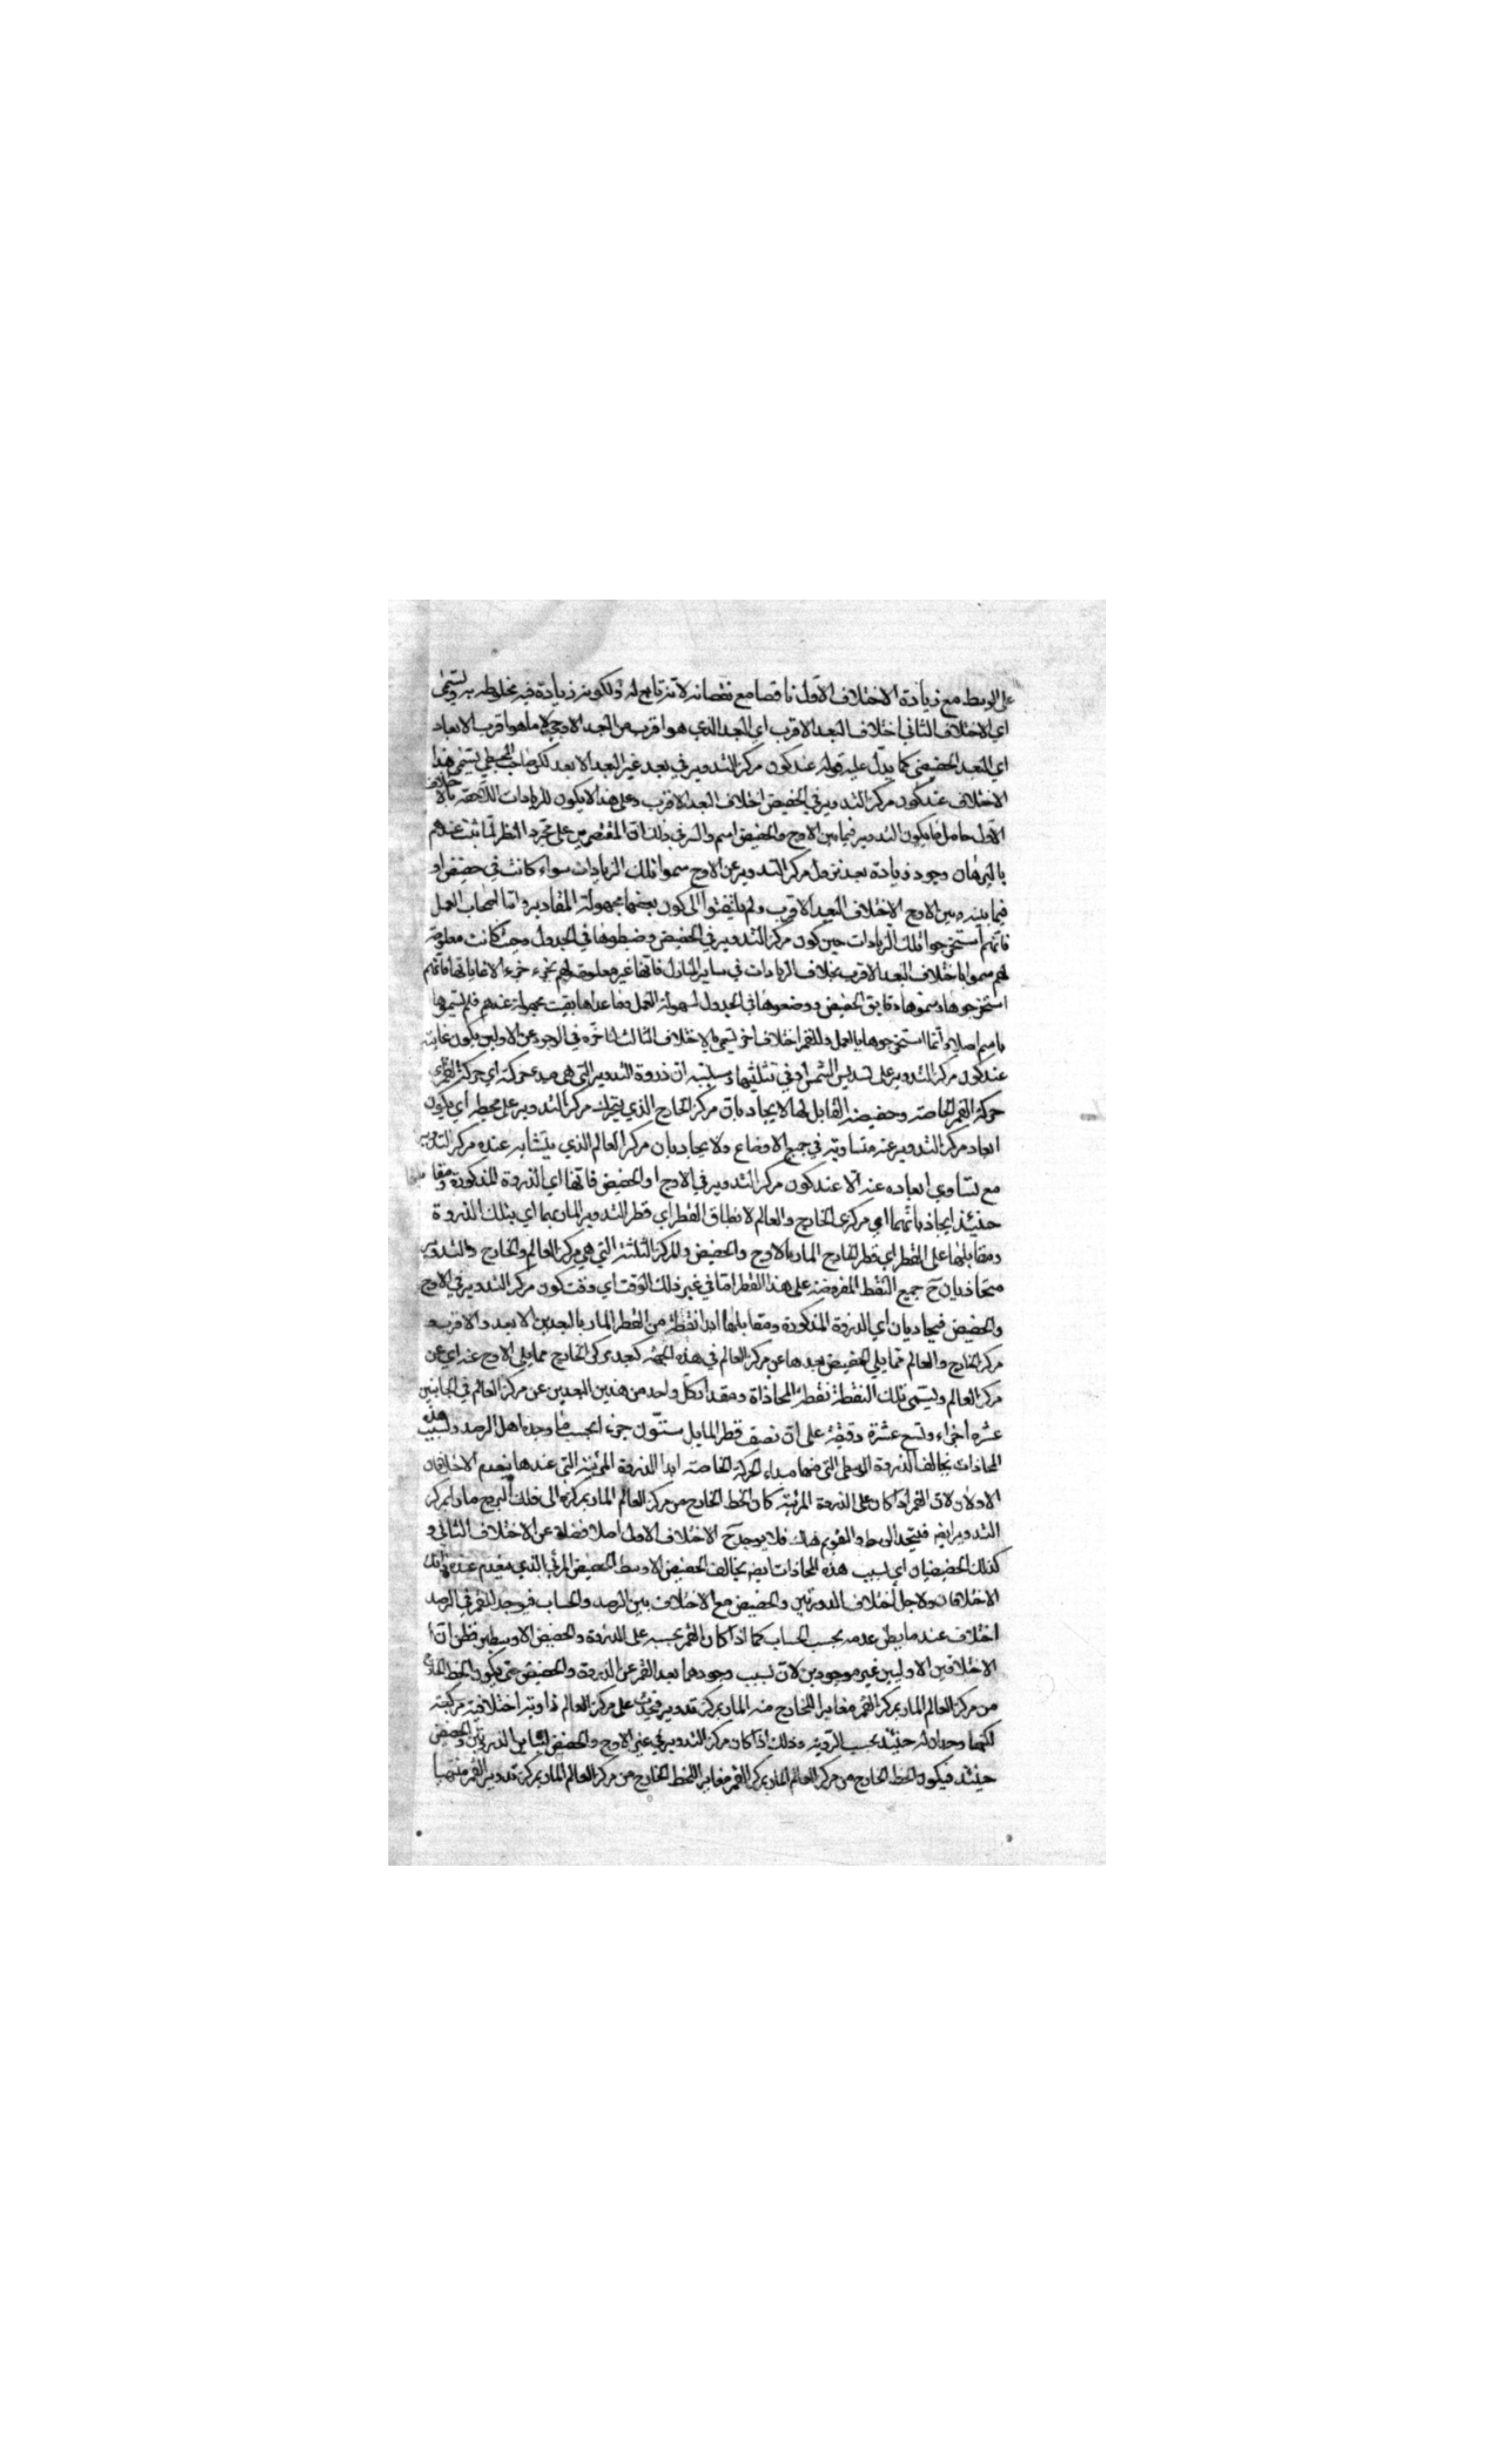 على الوسط مع زيادة الاختلاف الاول ناقصا مع نقصانه لانه تابع له ولكونه زيادة فيه مخلوطه به ويسمى
اي الاختلاف الثاني اختلاف البعد الاقرب اي البعد الذي هو اقرب من البعد الاوجي لا ما هو اقرب الابعاد
اي البعد الحضيضي كما يدل عليه قوله عند كون مركز التدوير في بعد غير البعد الابعد لكن صاحب المجسطي يسمى هذا
الاختلاف عند كون مركز التدوير في الحضيض اختلاف البعد الاقرب وعلى هذا لا يكون للزيادات اللاحقة بالاختلاف
الاول حاصل ما يكون التدوير فيما بين الاوج والحضيض اسم والسر في ذلك ان المقتصرين على مجرد النظر لما ثبت عندهم
بالبرهان وجود زيادة بعد نزول مركز التدوير عن الاوج سموا تلك الزيادات سواء كانت في حضيض او
فيما بينه وبين الاوج الاختلاف البعد الاقرب ولم يلتفتوا الى كون بعضها مجهولة المقادير واما اصحاب العمل
فانهم استخرجوا تلك الزيادات حين كون مركز التدوير في الحضيض وضبطوها في الجدول وحيث كانت معلومة
لهم سموها باختلاف البعد الاقرب بخلاف الزيادات في ساير المنازل فانها غير معلومة لهم بجزء جزء الا غاياتها فانهم
استخرجوها وسموها دقايق الحضيض ووضعوها في الجدول لسهولة العمل وما عداها بقيت مجهولة عندهم فلم يسموها
باسم اصلا وانما استخرجوها بالعمل وللقمر اختلاف اخر يسمى بالاختلاف الثالث لتاخره في الوجود عن الاولين يكون غايته
عند كون مركز التدوير على تسديس الشمس او في تثليثها وسببه ان ذروة التدوير التي هي مبدء حركة اي حركة القمر
حركة القمر الخاصة وحضيضه المقابل لها لا يحاذيان مركز الخارج الذي يتحرك مركز التدوير على محيطه اي يكون
ابعاد مركز التدوير عنه متساوية في جميع الاوضاع ولا يحاذيان مركز العالم الذي يتشابه عنده مركز التدوير
مع تساوي ابعاده عنه الا عند كون مركز التدوير في الاوج او الحضيض فانها اي الذروة المذكورة ومقابلها
حينئذ يحاذيانهما اي مركزي الخارج والعالم لانطباق القطر اي قطر التدوير المار بهما اي بتلك الذروة
ومقابلها على القطر اي قطر الخارج المار بالاوج والحضيض والمراكز الثلثة التي هي مركز العالم والخارج والتدوير
متحاذيان ح جميع النقط المفروضة على هذا القطر اما في غير ذلك الوقت اي وقت كون مركز التدوير في الاوج
والحضيض فيحاذيان اي الذروة المذكورة ومقابلها ابدا نقطة من القطر المار بالبعدين الابعد والاقرب و
مركز الخارج والعالم مما يلي الحضيض بعدها عن مركز العالم في هذه الجهة كبعد مركز الخارج مما يلي الاوج عنه اي عن
مركز العالم وليسمى تلك النقطة نقطة المحاذاة ومقدار كل واحد من هذين البعدين عن مركز العالم في الجانبين
عشرة اجزاء وتسع عشرة دقيقة على ان نصف قطر المايل ستون جزءا بحسب ما وجده اهل الرصد وبسبب هذه
المحاذات يخالف الذروة الوسطى التي منها مبداء الحركة الخاصة ابدا الذروة المرئية التي عندها ينعدم الاختلافان
الاولان لان القمر اذا كان على الذروة المرئية كان الخط الخارج من مركز العالم المار بمركزه الى فلك البروج مارا بمركز
التدوير ايضا فيتحد الوسط والتقويم هناك فلا يوجد ح الاختلاف الاول اصلا فضلا عن الاختلاف الثاني و
كذلك الحضيضيان اي بسبب هذه المحاذات ايضا يخالف الحضيض الاوسط الحضيض المرئي الذي ينعدم عنده ذانك
الاختلافان ولاجل اختلاف الذروتين والحضيضين مع الاختلاف بين الرصد والحساب فيوجد للقمر في الرصد
اختلاف عند ما يظن عدمه بحسب الحساب كما اذا كان القمر بحسبه على الذروة والحضيض الاوسطين يظن ان
الاختلافين الاوليين غير موجودين لان سبب وجودهما بعد القمر عن الذروة والحضيض حتى يكون الخط الخارج
من مركز العالم المار بمركز القمر مغايرا للخارج منه المار بمركز تدويره فيحدث على مركز العالم زاوية اختلافية مركبة
لكنهما وجدان له حينئذ بحسب الرؤية وذلك اذا كان مركز التدوير في غير الاوج والحضيض لتباين الذروتين والحضيضين
حينئذ فيكون الخط الخارج من مركز العالم المار بمركز القمر مغايرا للخط الخارج من مركز العالم المار بمركز تدوير القمر منتهيا